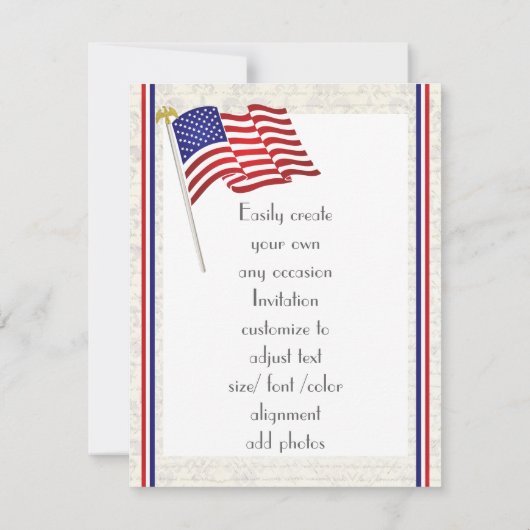 Easily create
your own
any occasion
Invitation
customize to
adjust text
size/ font /color
alignment
add photos